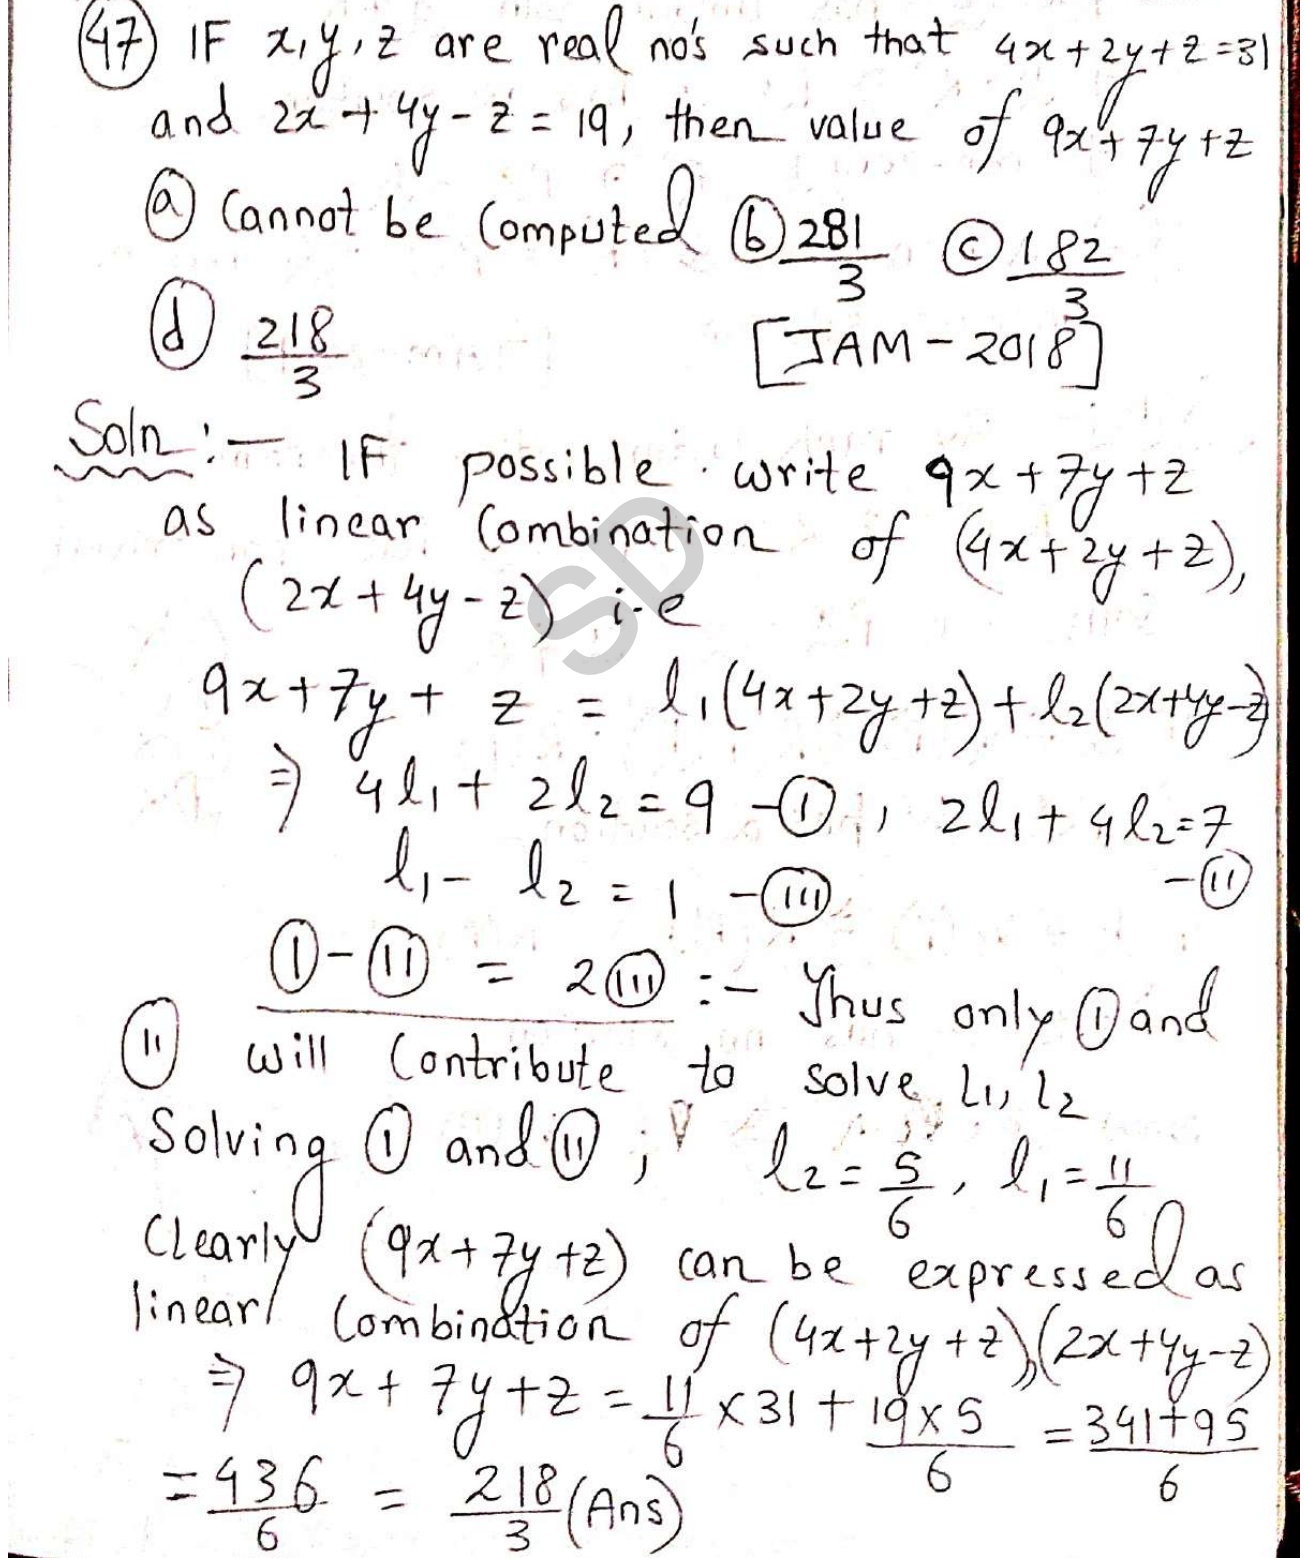 (47) IF x, y, z are real no's such that 4x+2y+z=31
and 2x+4y-z=19, then value of 9x+7y+z
(a) Cannot be Computed (b) 281/3 (c) 182/3
(d) 218/3 [JAM-2018]
Soln :- IF possible write 9x+7y+z
as linear Combination of (4x+2y+z),
(2x+4y-z) i-e
9x+7y+z = l₁(4x+2y+z)+l₂(2x+4y-z)
⇒ 4l₁+2l₂=9 -(I), 2l₁+4l₂=7
-(II)
l₁-l₂=1 -(III)
(I)-(II) = 2(III) :- Thus only (I) and
(II) will Contribute to solve l₁, l₂
Solving (I) and (II); l₂=5/6, l₁=11/6
Clearly (9x+7y+z) can be expressed as
linear Combination of (4x+2y+z),(2x+4y-z)
⇒ 9x+7y+z = 11/6 × 31 + 19×5/6 = 341+95/6
= 436/6 = 218/3 (Ans)
SD